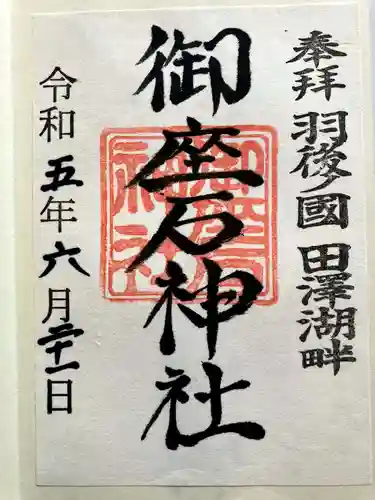 奉拝 羽後ノ國 田澤湖畔
御座石神社
御座石神社
令和五年六月二十一日